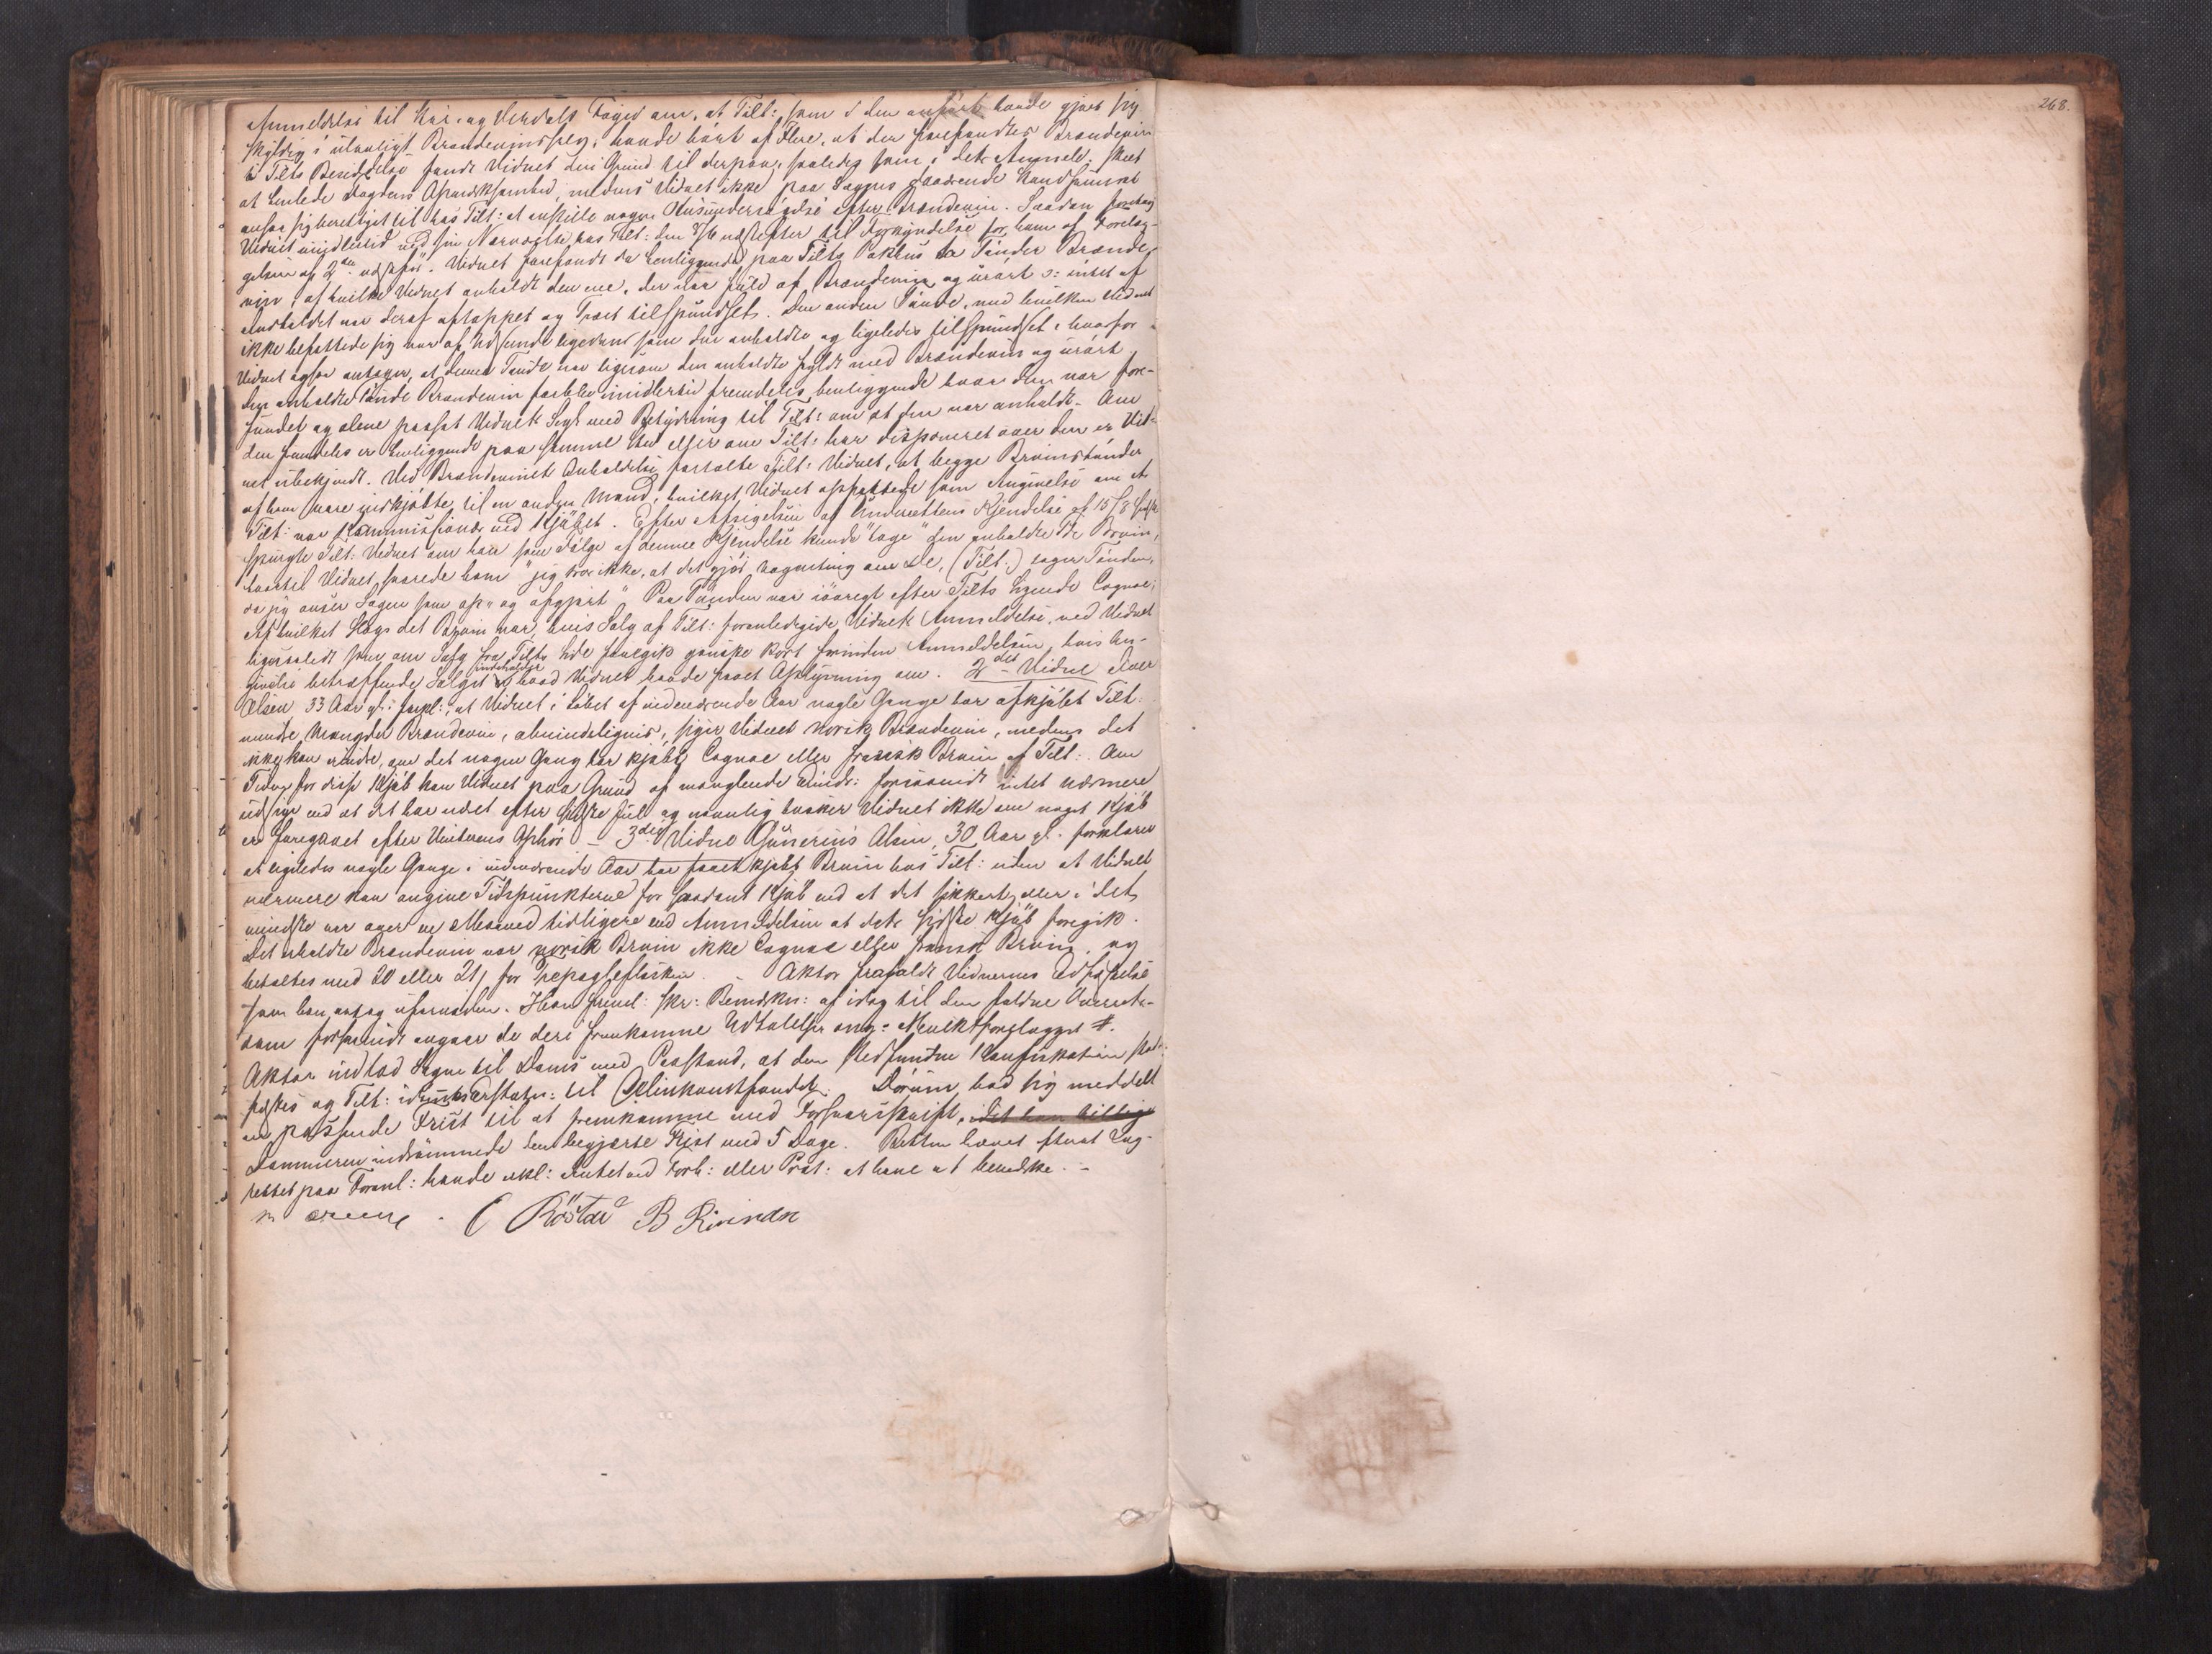 268.
Anmeldelse til Stør- og Værdals Foged om, at Tilt:, som i den anførte havde gjort sig
skyldig i ulovligt Brændevinssalg, havde hørt af Flere, at der forefandtes Brændevin
i Tilts Besiddelse fandt Vidnet den Grund til derpaa, saaledes som i dets Anmeld. skeet
at henlede Fogdens Opmærksomhed, medens Vidnet ikke paa Sagens daværende Standpunkt
ansaa sig berettiget til hos Tilt: at anstille nogen Husundersøgelse efter Brændevin. Saadan foretog
Vidnet imidlertid ved sin Nærværelse hos Tilt: den 3/6 næstefter til Forkyndelse for ham af Forelæg-
gelsen af 2den. Vidnet forefandt da henliggende paa Tilts Pakhus to Tønder Brænde-
vin, af hvilke Vidnet anholdt den ene, der var fuld af Brændevin og urørt o: intet af
Indholdet var deraf aftappet og Træet tilspundset. Den anden Tønde, med hvilken Vidnet
ikke befattede sig var af Udseende ligedan som den anholdte og ligeledes tilspundset, hvorfor
Vidnet ogsaa antager, at denne Tønde var ligesom den anholdte fyldt med Brændevin og urørt.
Den anholdte Tønde Brændevin forblev imidlertid fremdeles henliggende hvor den var fore-
fundet og alene paasat Vidnets Segl med Betydning til Tilt: om at den var anholdt. Om
den fremdeles er henliggende paa samme Sted eller om Tilt: har disponeret over den er Vid-
net ubekjendt. Ved Brændevinets Anholdelse fortalte Tilt: Vidnet, at begge Brvinstønder
af ham vare indkjøbte til en anden Mand, hvilket Vidnet opfattede som Angivelse om at
Tilt: var Kommissionær ved Kjøbet. Efter Afsigelsen af Underrettens Kjendelse af 15/8 sidstl.
spurgte Tilt: Vidnet om han som Følge af denne Kjendelse kunde "tage" den anholdte Td Brvin,
hvortil Vidnet svarede ham "jeg tror ikke, at det gjør nogenting om De, (Tilt:) tager Tønden,
da jeg anser Sagen som op- og afgjort". Paa Tønden var iøvrigt efter Tilts Sigende Cognac;
Af hvilket Slags det Brvin var, hvis Salg af Tilt: foranledigede Vidnets Anmeldelse, ved Vidnet
ligesaalidt som om Salg fra Tilts Side foregik ganske kort forinden Anmeldelsen, hvis An-
givelse betræffende Salget indeholdt hvad Vidnet havde faaet Oplysning om. 2det Vidne Iver
Olsen 33 Aar gl: forkl:, at Vidnet i Løbet af indeværende Aar nogle Gange har afkjøbt Tilt:
mindre Mængder Brændevin, almindeligvis, siger Vidnet norsk Brændevin, medens det
ikke kan erindre, om det nogen Gang har kjøbt Cognac eller fransk Brvin af Tilt:. Om
Tiden for disse Kjøb kan Vidnet paa Grund af manglende Erindr: forsaavidt intet nærmere
udsige end at det har været efter sidste Jul og navnlig husker Vidnet ikke om noget Kjøb
er foregaaet efter Vinterens Ophør. – 3die Vidne Gunerius Olsen, 30 Aar gl. forklarer
at ligeledes nogle Gange i indeværende Aar har faaet kjøbt Brvin hos Tilt: uden at Vidnet
nærmere kan angive Tidspunkterne for saadant Kjøb end at det sikkert, eller i det
mindste var over en Maaned tidligere end Anmeldelsen at dets sidste Kjøb foregik.
Det erholdte Brændevin var norsk Brvin ikke Cognac eller fransk Brvin, og
betaltes med 20 eller 21 ß for Trepægleflasken. – Aktor frafaldt Vidnernes Edfæstelse
som han antog ufornøden. Han freml: skr: Bemærkn: af idag til den faldne Overrets-
dom forsaavidt angaar de deri fremkomne Udtalelser ang: Mulktforelægget #.
Aktor indlod Sagen til Doms med Paastand, at den stedfundne Konfiskation stad-
fæstes og Tilt: idømmes Erstatn: til Delinkventfondet. Dørum bad sig meddelt
en passende Frist til at fremkomme med Forsvarsskrift,
Dommeren indrømmede den begjærte Frist med 5 Dage. Retten hævet efterat Lag-
rettet paa Foranl: havde erkl: Intet ved Forh: eller Prot: at have at bemærke. –
C Röstad B Rinnan